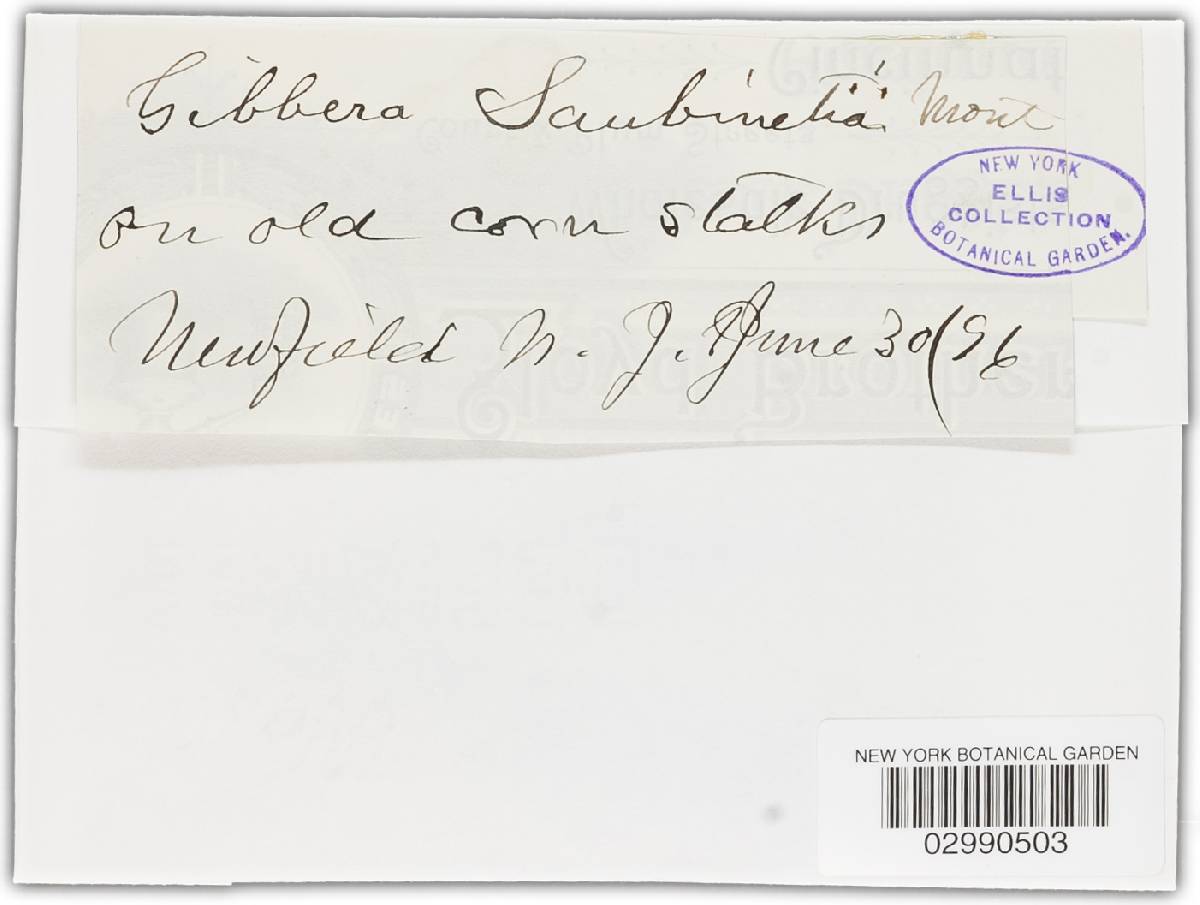 Gibbera Saubinetii Mont
on old corn stalks
Newfield N. J. June 30/96
NEW YORK
ELLIS
COLLECTION
BOTANICAL GARDEN.
NEW YORK BOTANICAL GARDEN
02990503